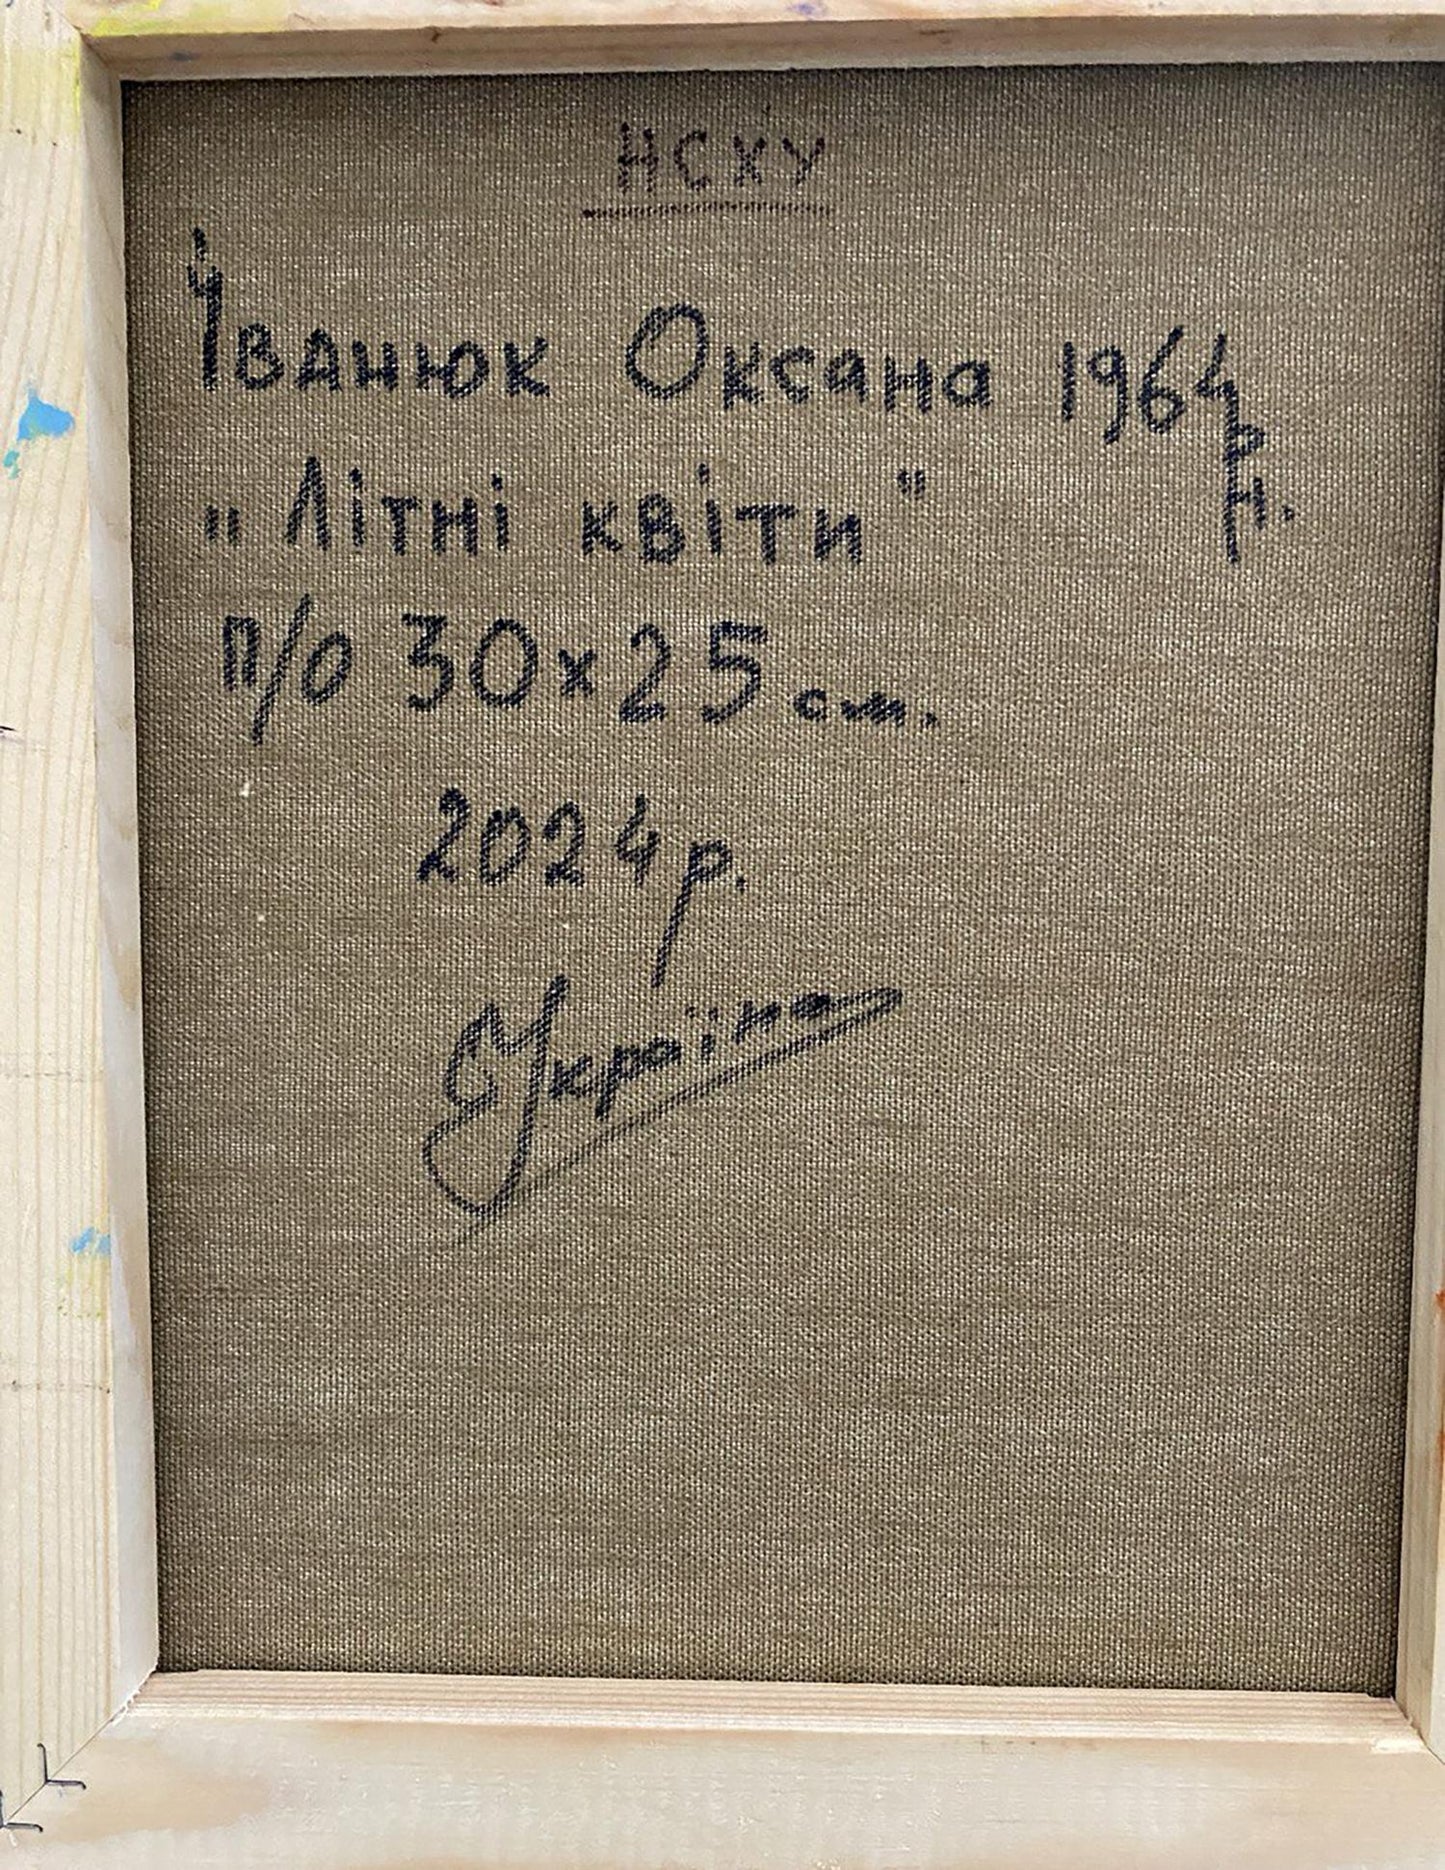 НСХУ
Іванюк Оксана 1964 р.н.
„Літні квіти"
п/о 30х25 см.
2024 р.
Україна